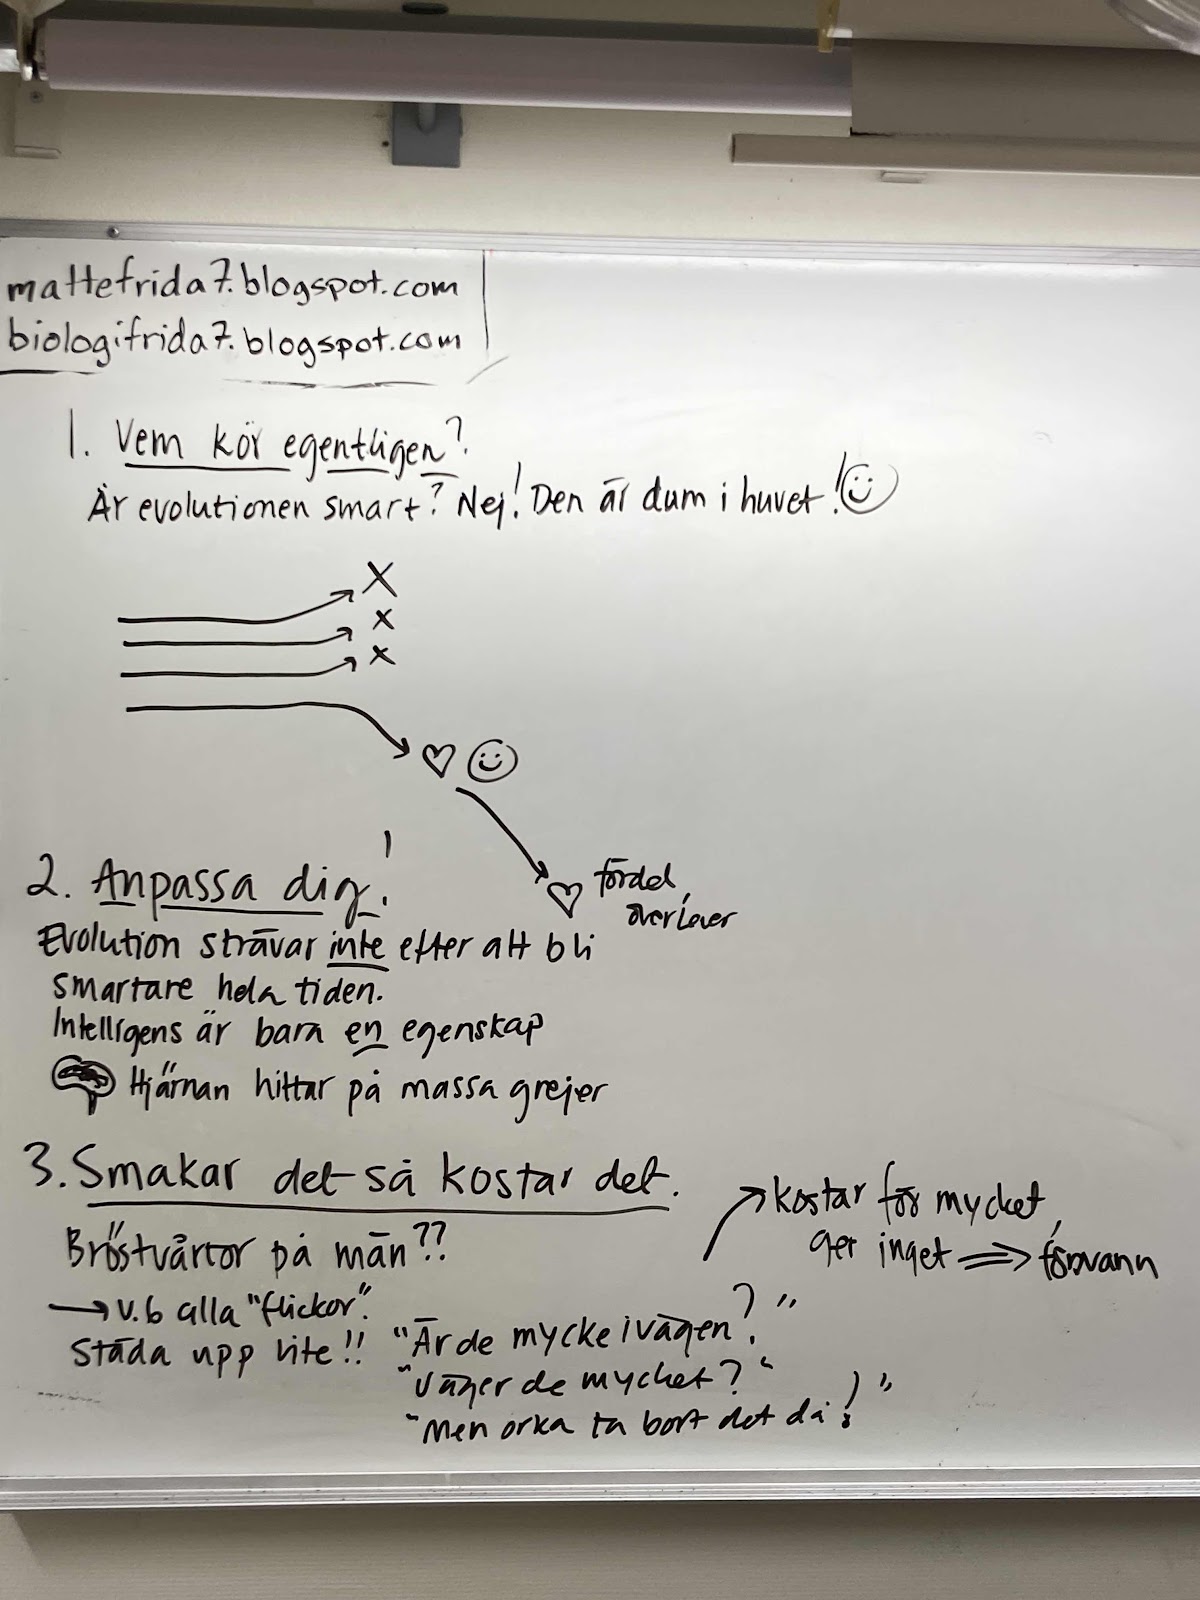 mattefrida7.blogspot.com
biologifrida7.blogspot.com
1. Vem kör egentligen?
Är evolutionen smart? Nej! Den är dum i huvet!
X
X
X
fördel,
överlever
2. Anpassa dig!
Evolution strävar inte efter att bli
smartare hela tiden.
Intelligens är bara en egenskap
Hjärnan hittar på massa grejer
3. Smakar det så kostar det.
Bröstvårtor på män??
→ v.6 alla "flickor".
Städa upp lite!!
"Är de mycke i vägen?"
"Väger de mycket?"
"Men orka ta bort det då!"
kostar för mycket,
ger inget ⇒ försvann